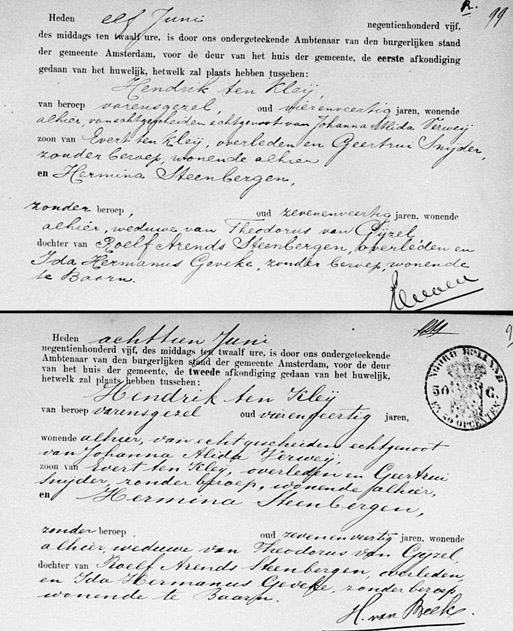 R. 99
Heden elf Juni negentienhonderd vijf,
des middags ten twaalf ure, is door ons ondergeteekende Ambtenaar van den burgerlijken stand
der gemeente Amsterdam, voor de deur van het huis der gemeente, de eerste afkondiging
gedaan van het huwelijk, hetwelk zal plaats hebben tusschen:
Hendrik ten Kleij,
van beroep varensgezel, oud vierenveertig jaren, wonende
alhier, van echtgescheiden echtgenoot van Johanna Alida Verweij
zoon van Evert ten Kleij, overleden en Geertrui Snijder,
zonder beroep, wonende alhier
en Hermina Steenbergen,
zonder beroep, oud zevenenveertig jaren, wonende
alhier, weduwe van Theodorus van Gijzel,
dochter van Roelf Arends Steenbergen, overleden en
Ida Hermanus Geveke, zonder beroep, wonende
te Baarn.
Heden achttien Juni
negentienhonderd vijf, des middags ten twaalf ure, is door ons ondergeteekende
Ambtenaar van den burgerlijken stand der gemeente Amsterdam, voor de deur
van het huis der gemeente, de tweede afkondiging gedaan van het huwelijk,
hetwelk zal plaats hebben tusschen:
NOORD HOLLAND
50 C.
EN 50 OPCENTEN
Hendrik ten Kleij
van beroep varensgezel oud vierenveertig jaren,
wonende alhier, van echtgescheiden echtgenoot
van Johanna Alida Verweij,
zoon van Evert ten Kleij, overleden en Geertrui
Snijder, zonder beroep, wonende alhier,
en Hermina Steenbergen,
zonder beroep oud zevenenveertig jaren, wonende
alhier, weduwe van Theodorus van Gijzel,
dochter van Roelf Arends Steenbergen, overleden,
en Ida Hermanus Geveke, zonder beroep,
wonende te Baarn.
H. van Beek.